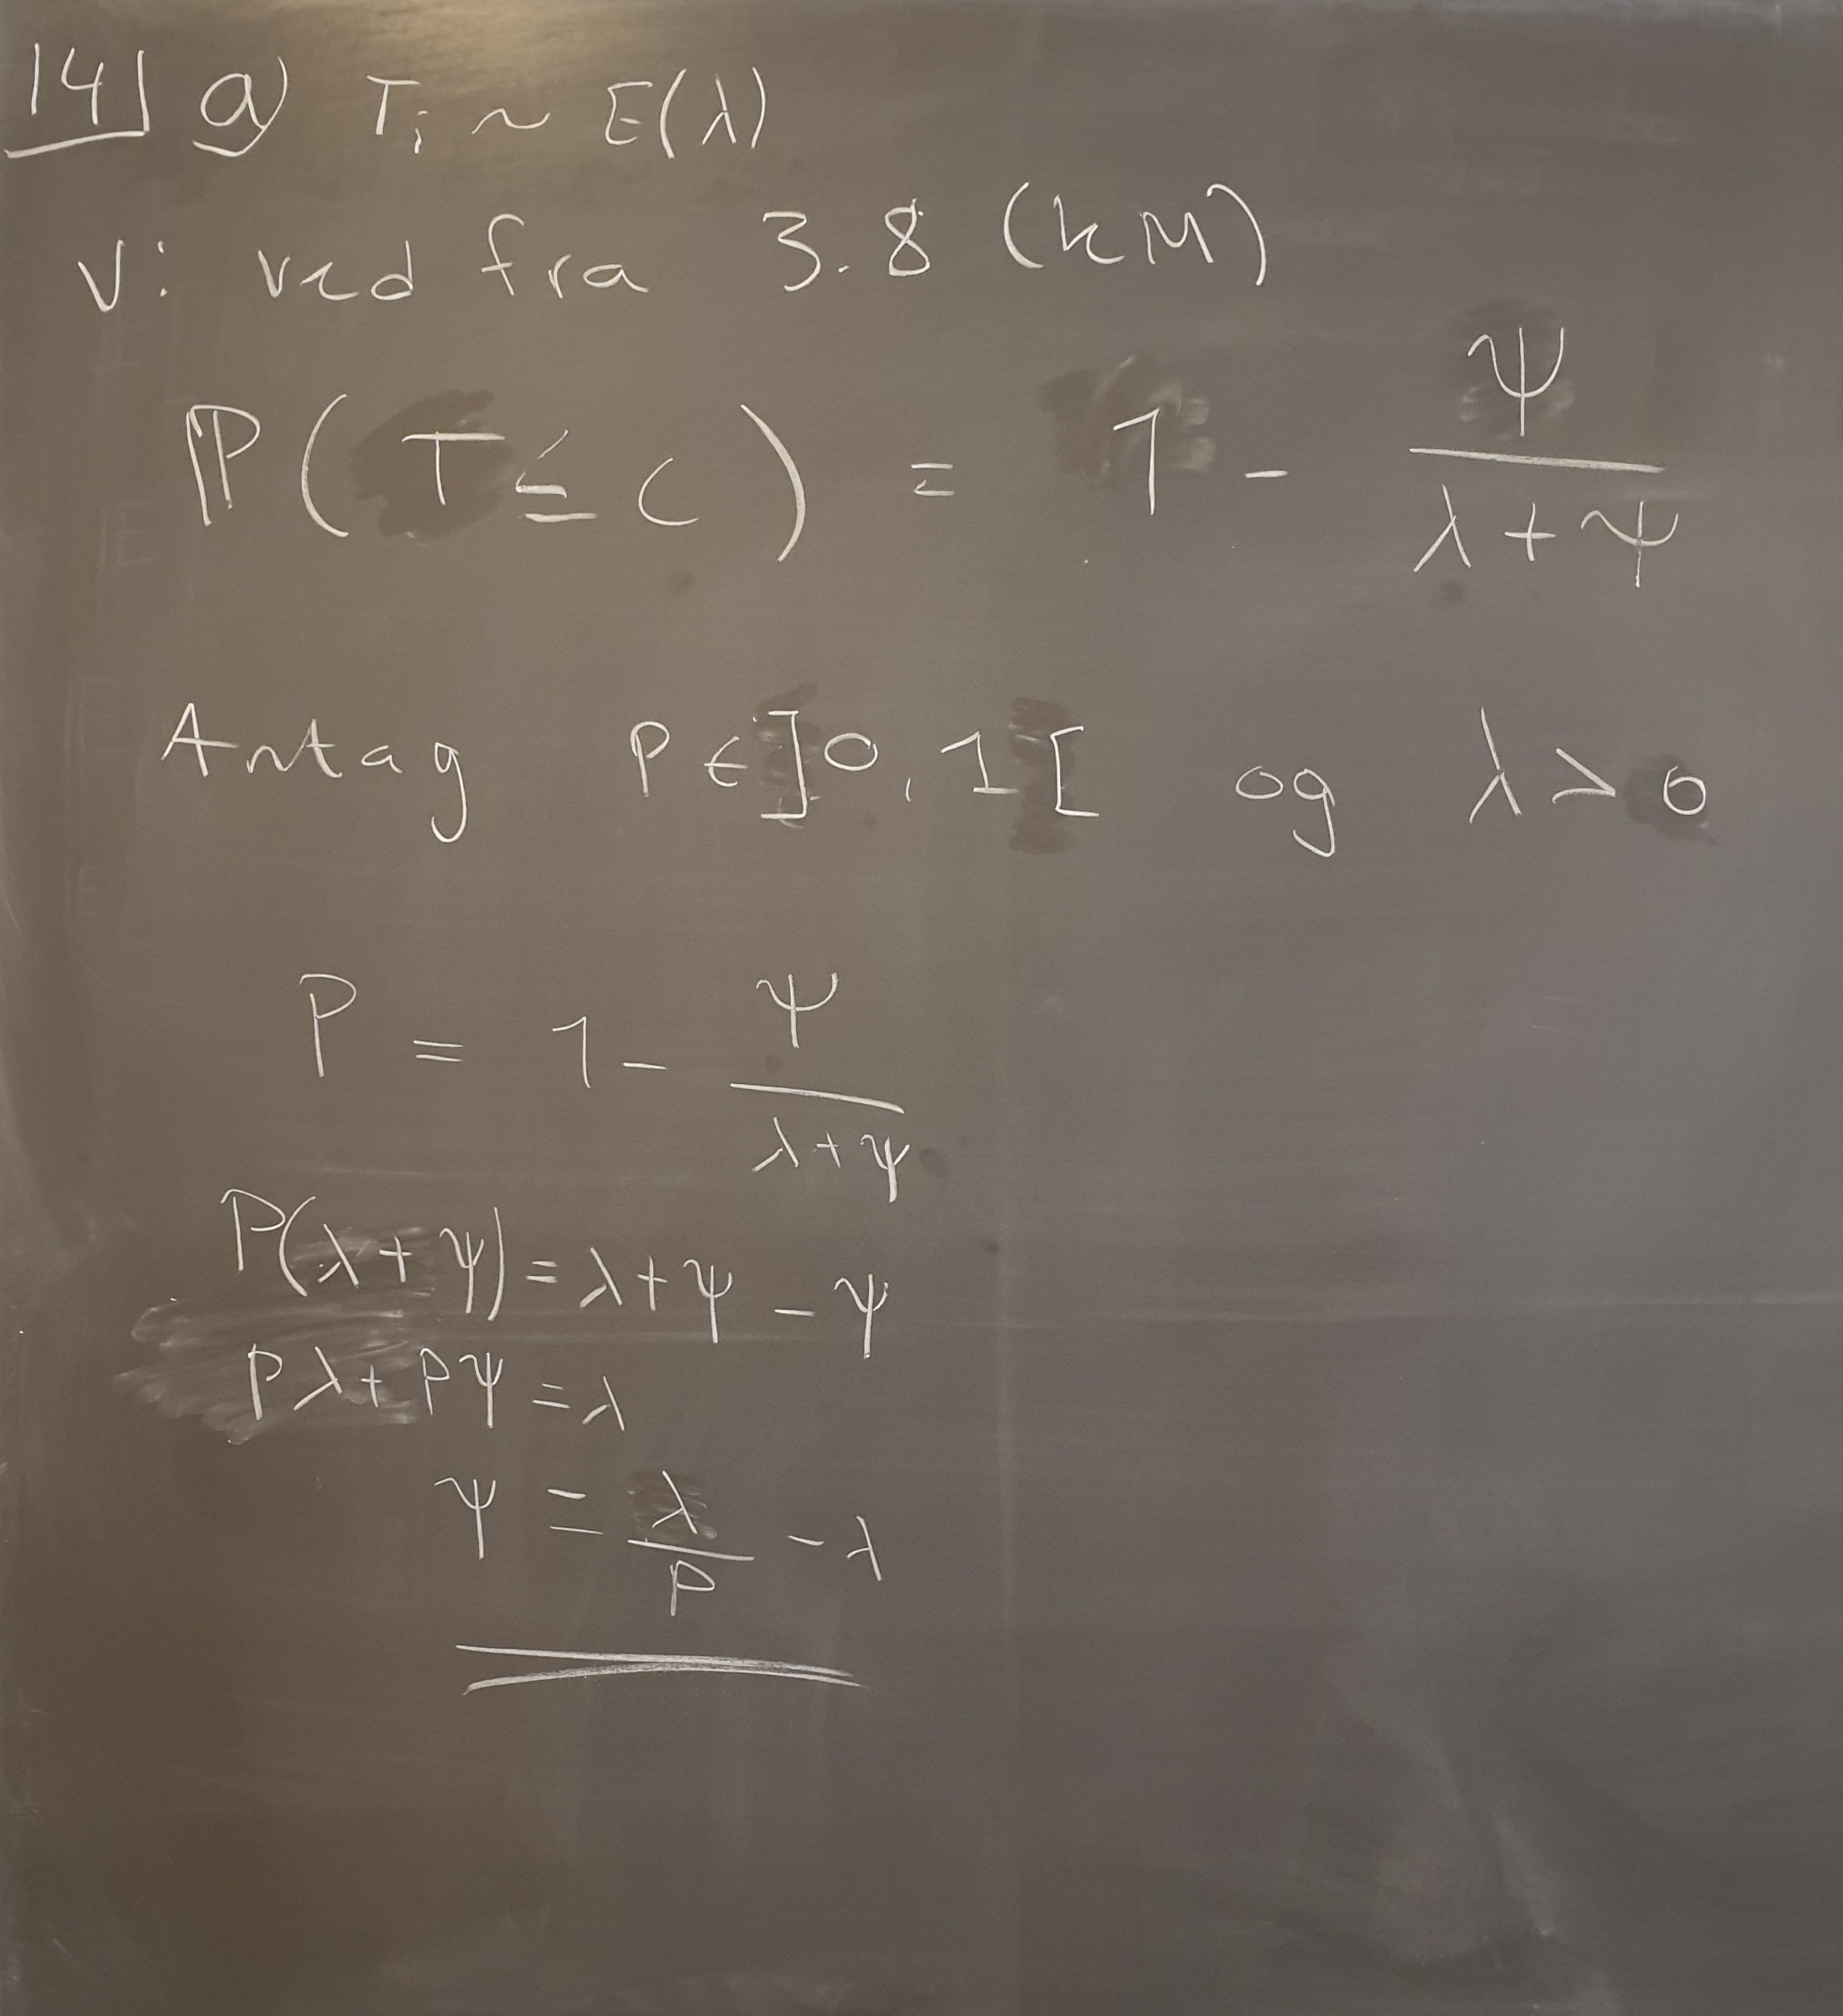 14 a) Tᵢ ~ E(λ)
Vi ved fra 3.8 (KM)
ℙ(T ≤ C) = 1 - Ψ/(λ+Ψ)
Antag p ∈ ]0,1[ og λ > 0
P = 1 - Ψ/(λ+Ψ)
P(λ+Ψ) = λ+Ψ - Ψ
Pλ + PΨ = λ
Ψ = λ/P - λ